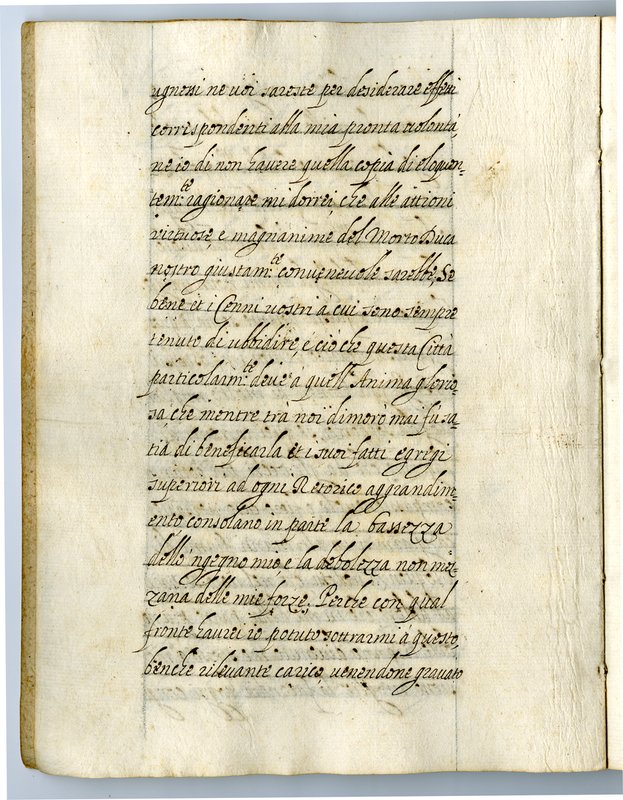 ne uoi sareste per desiderare effetti
correspondenti alla mia pronta uolontà,
ne io di non hauere quella copia di eloquen-
tem.te ragionare mi dorrei, che alle attioni
virtuose, e magnanime del Morto Duca
nostro giustam.te conueneuole sarebbe, Se
bene et i Cenni uostri à cui sono sempre
tenuto di ubbidire, e ciò che questa Città
particolarm.te deue à quell'Anima glorio-
sa, che mentre trà noi dimorò mai fù sa-
tia di beneficarla et i suoi fatti egregi
superiori ad ogni Retorico aggrandim-
ento consolano in parte la bassezza
dello 'ngegno mio, e la debolezza non mez-
zana delle mie forze. Perche con qual
fronte haurei io potuto sottrarmi à questo,
benche rileuante carico, uenendone grauato